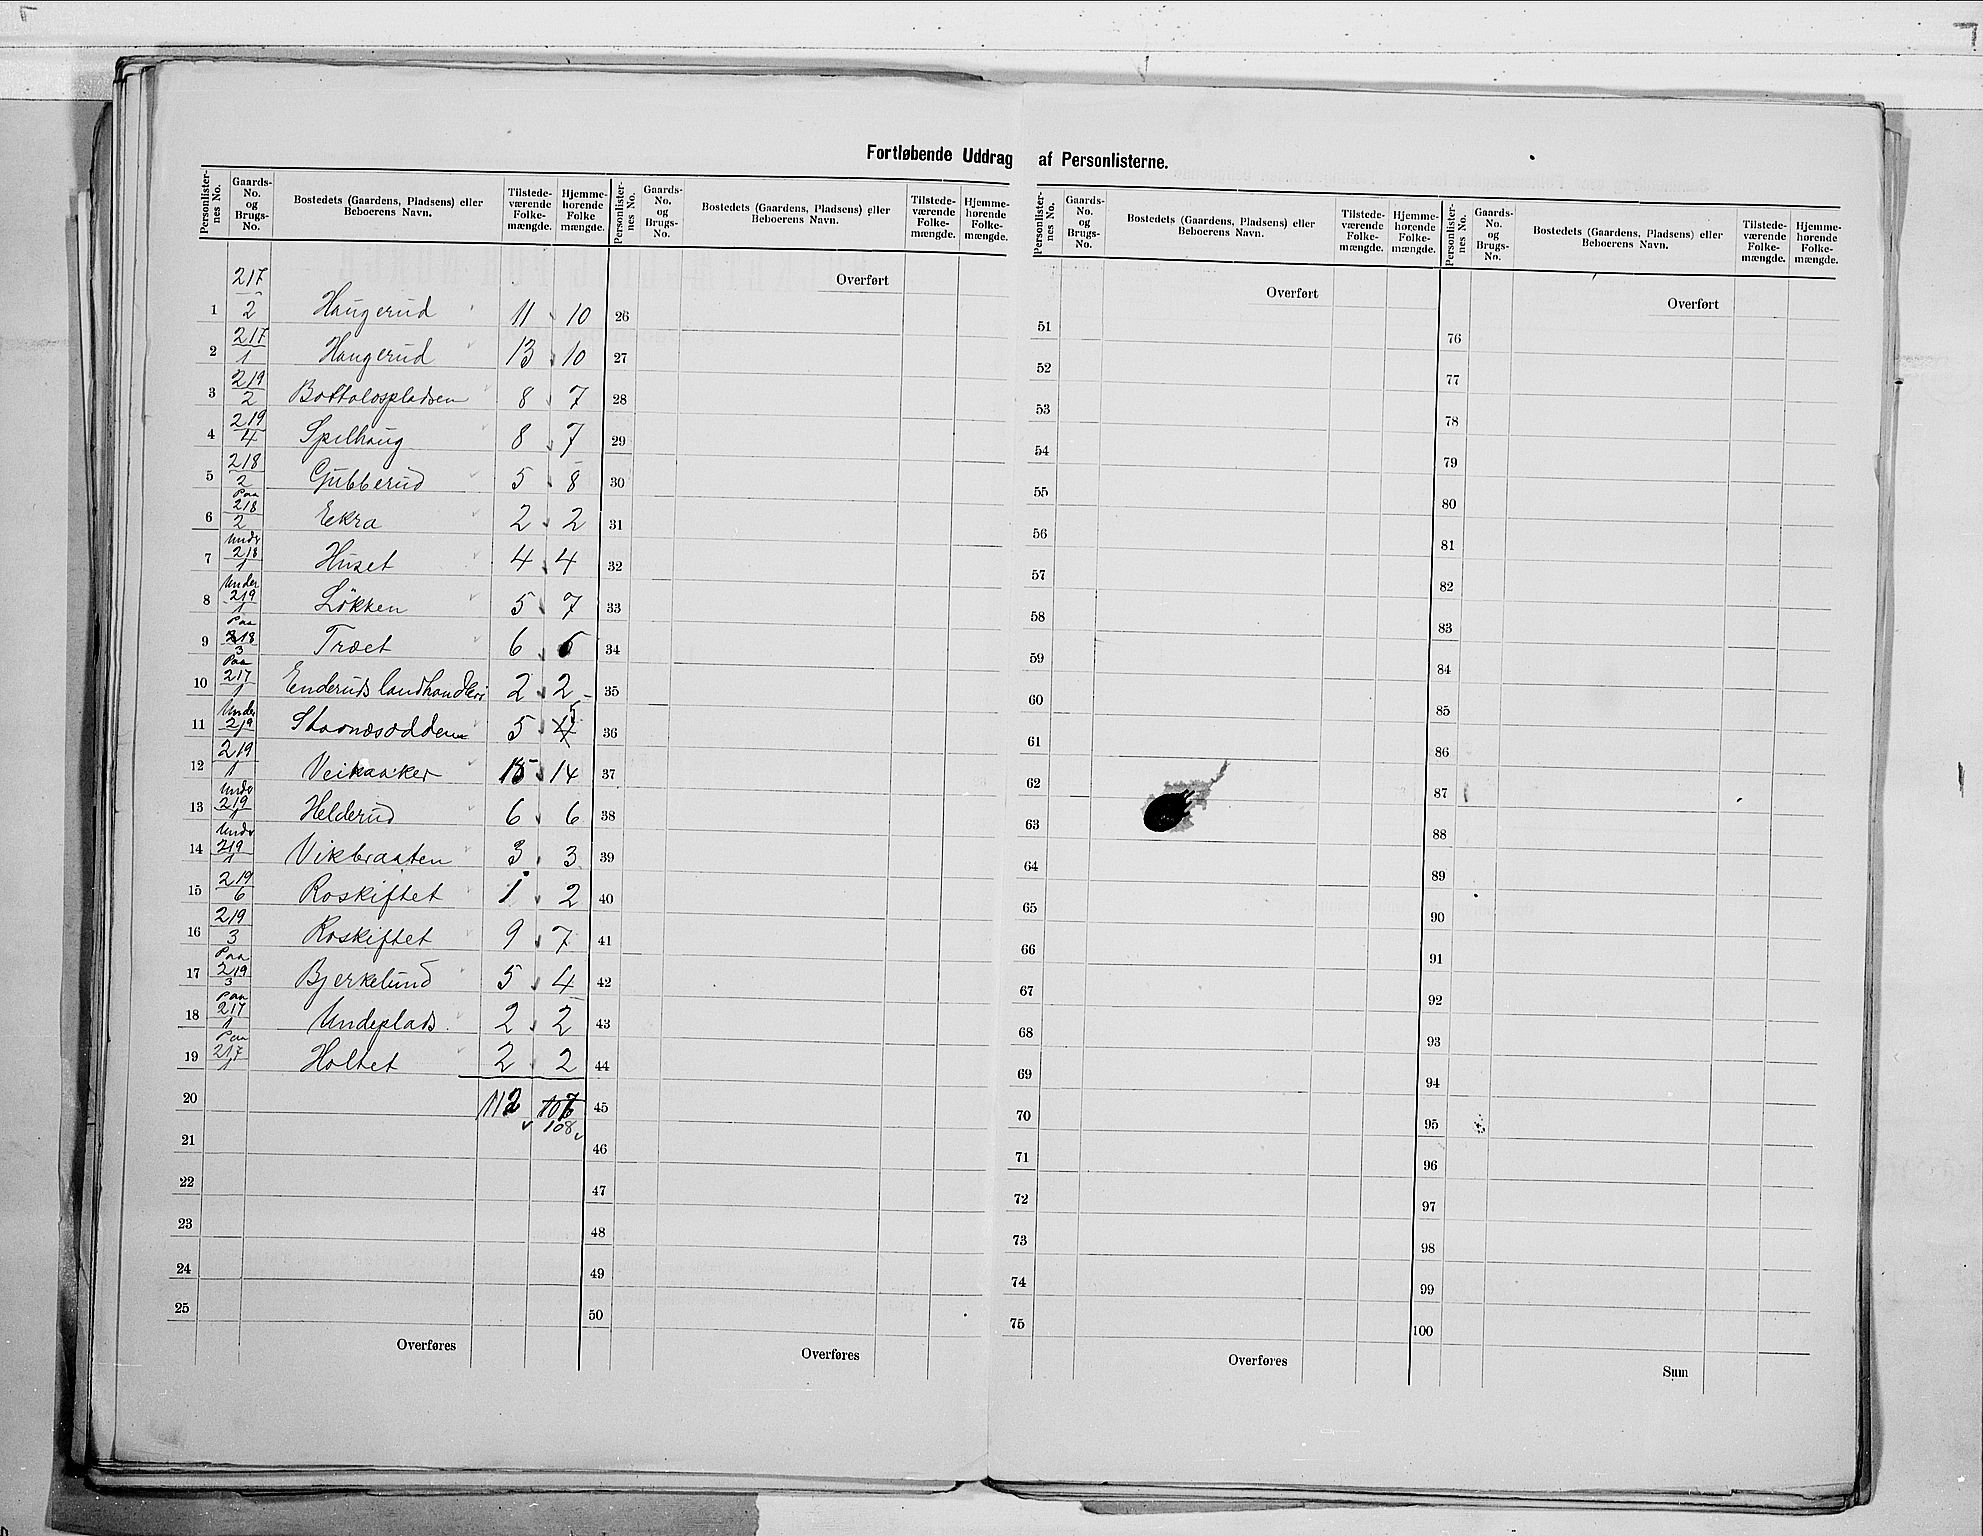 Fortløbende Uddrag af Personlisterne.
Personlister-nes No. | Gaards-No. og Brugs-No. | Bostedets (Gaardens, Pladsens) eller Beboerens Navn. | Tilstede-værende Folke-mængde. | Hjemme-hørende Folke mængde.
1 217/2 Haugerud 11 10
2 217/1 Haugerud 13 10
3 219/2 Bottolospladsen 8 7
4 219/4 Spilhaug 8 7
5 218/2 Gubberud 5 8
6 Paa 218/2 Ekra 2 2
7 Under 218/1 Huset 4 4
8 Under 219/1 Løkken 5 7
9 Paa 218/3 Træet 6 6
10 Paa 217/1 Enderuds landhandleri 2 2
11 Under 219 Staanæsodden 5 4 5
12 219/1 Veikaaker 15 14
13 Under 219/1 Helderud 6 6
14 Under 219/1 Vikbraaten 3 3
15 219/6 Roskiftet 1 2
16 219/3 Roskiftet 9 7
17 Paa 219/3 Bjerkelund 5 4
18 Paa 217/1 Undeplads 2 2
19 Paa 217/1 Holtet 2 2
20 112 107
108
21
22
23
24
25
Overføres
Personlister-nes No. | Gaards-No. og Brugs-No. | Bostedets (Gaardens, Pladsens) eller Beboerens Navn. | Tilstede-værende Folke-mængde. | Hjemme-hørende Folke-mængde.
Overført
26
27
28
29
30
31
32
33
34
35
36
37
38
39
40
41
42
43
44
45
46
47
48
49
50
Overføres
Personlister-nes No. | Gaards-No. og Brugs-No. | Bostedets (Gaardens, Pladsens) eller Beboerens Navn. | Tilstede-værende Folke-mængde. | Hjemme-hørende Folke-mængde.
Overført
51
52
53
54
55
56
57
58
59
60
61
62
63
64
65
66
67
68
69
70
71
72
73
74
75
Overføres
Personlister-nes No. | Gaards-No. og Brugs-No. | Bostedets (Gaardens, Pladsens) eller Beboerens Navn. | Tilstede-værende Folke-mængde. | Hjemme-hørende Folke-mængde.
Overført
76
77
78
79
80
81
82
83
84
85
86
87
88
89
90
91
92
93
94
95
96
97
98
99
100
Sum